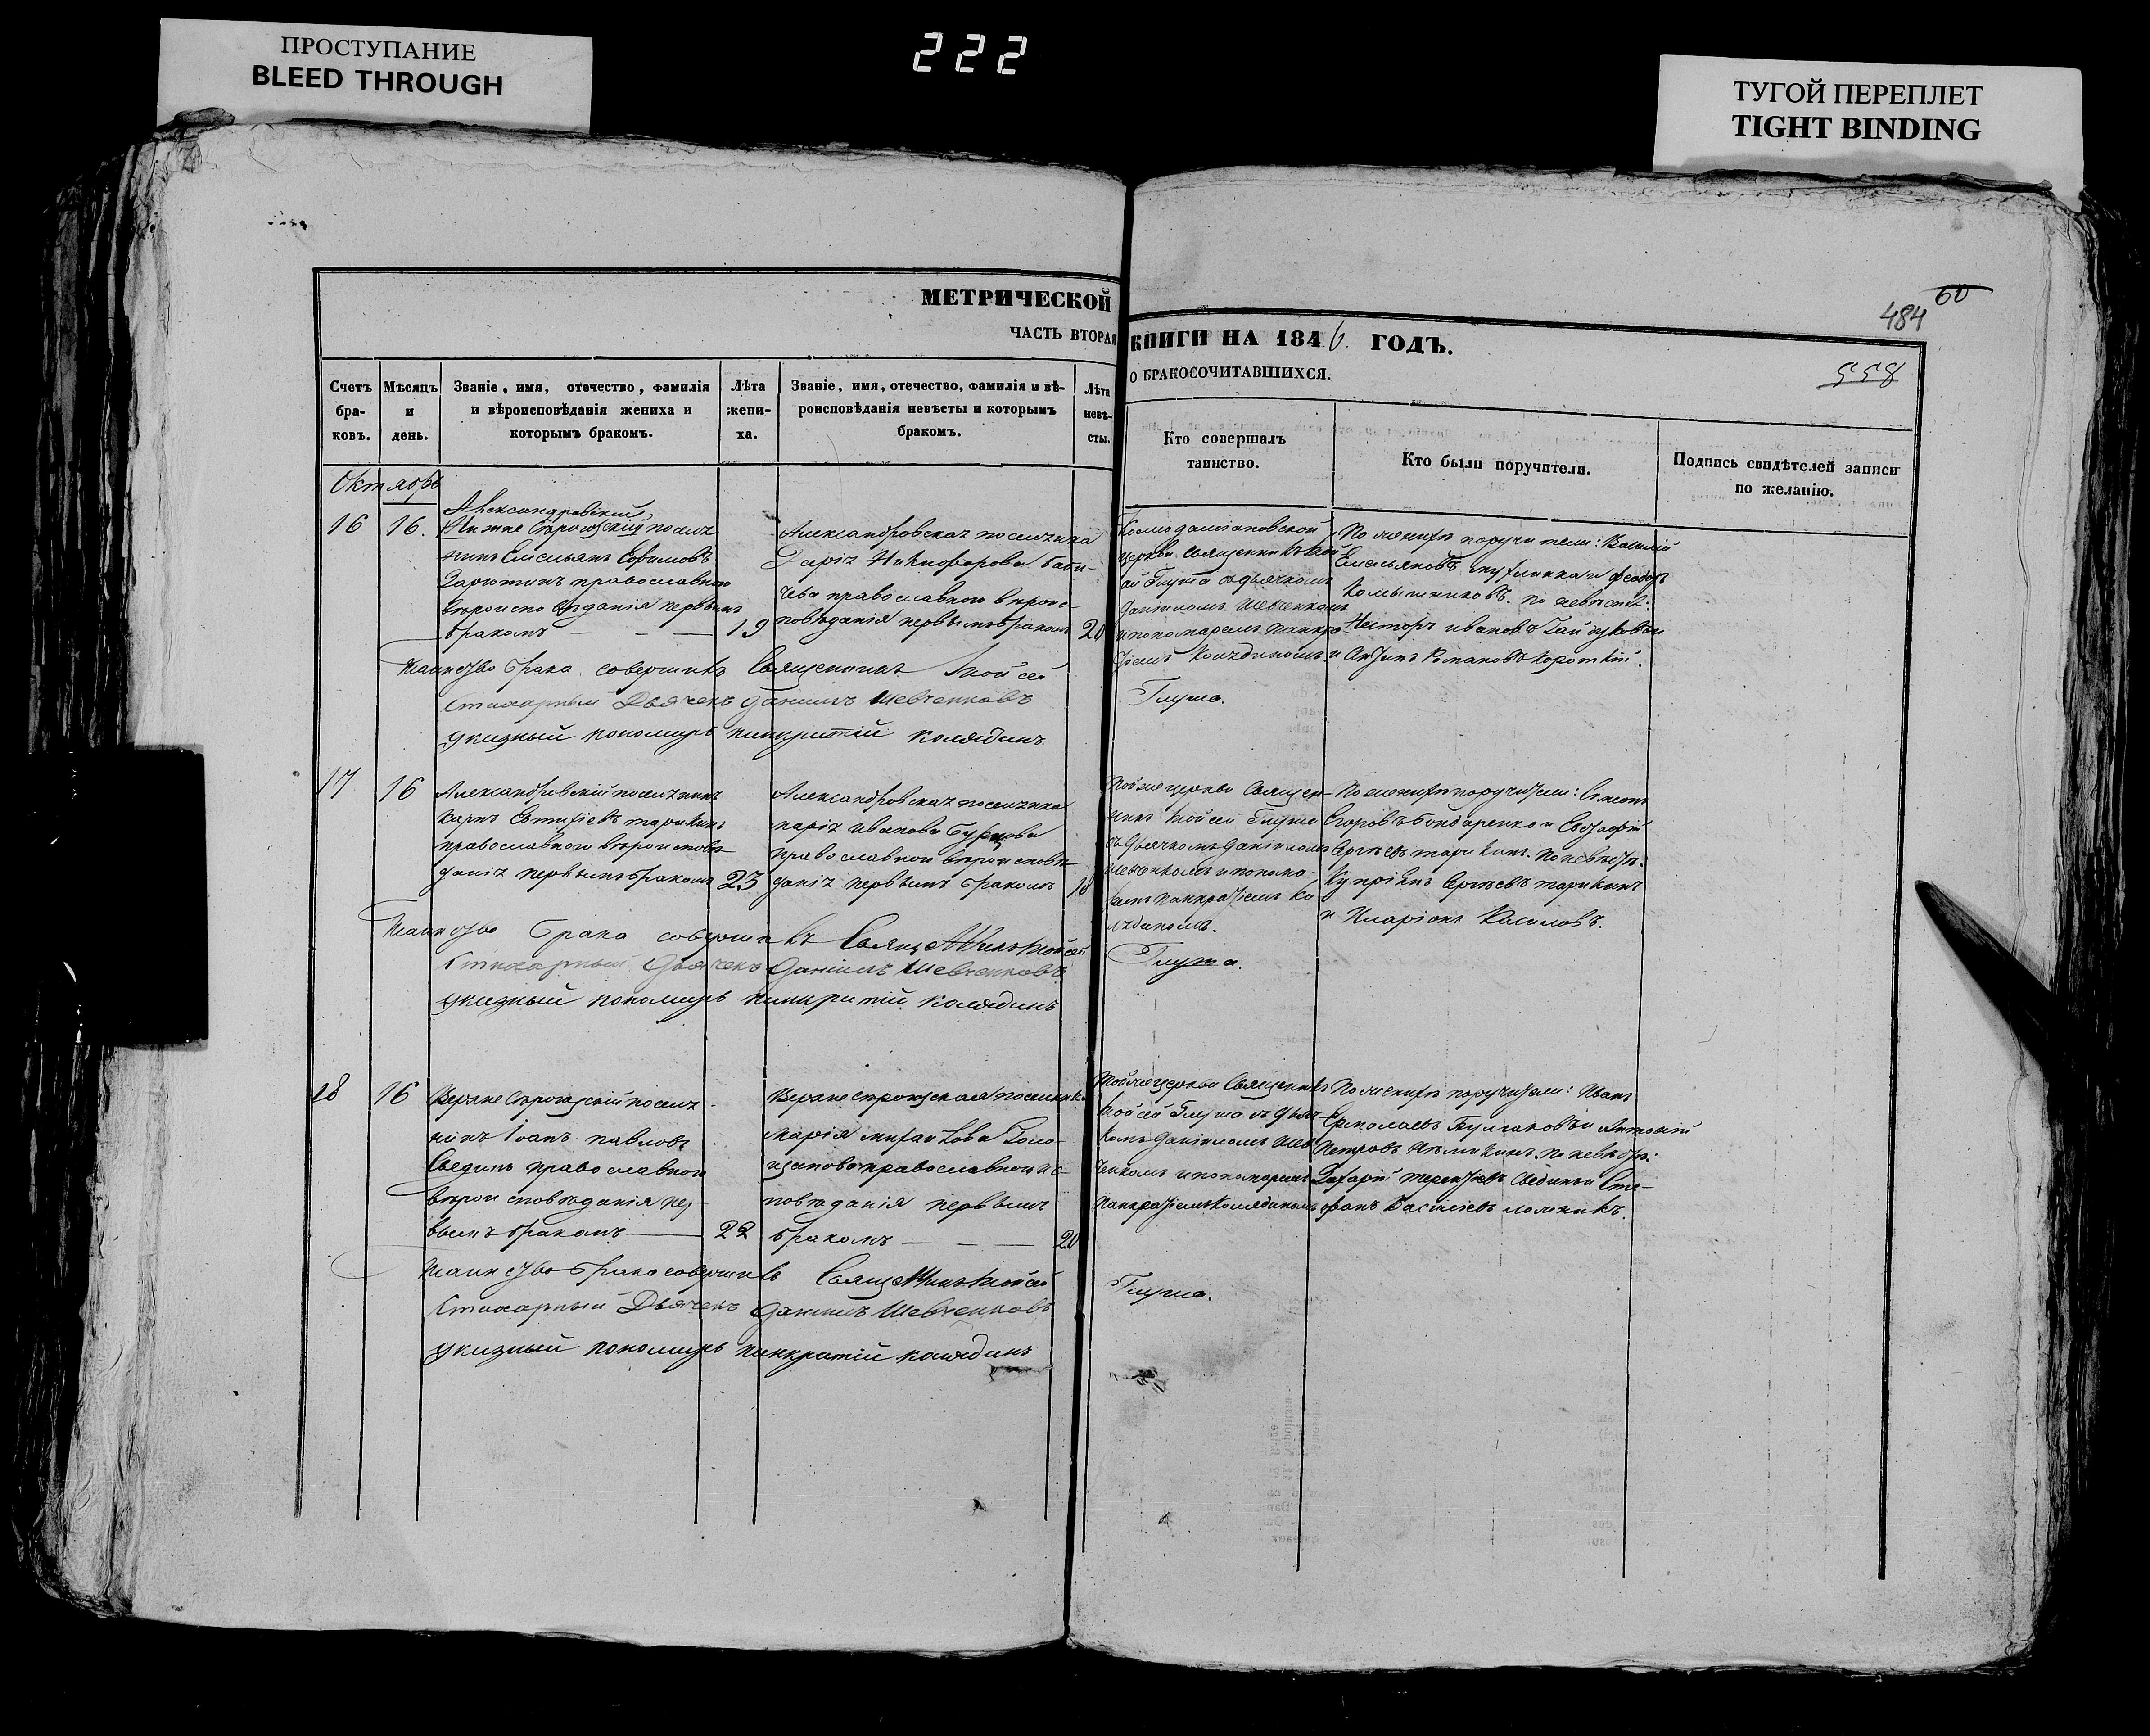 ПРОСТУПАНИЕ
BLEED THROUGH
222
ТУГОЙ ПЕРЕПЛЕТ
TIGHT BINDING
МЕТРИЧЕСКОЙ
ЧАСТЬ ВТОРАЯ
КНИГИ НА 1846. ГОДЪ.
О БРАКОСОЧИТАВШИХСЯ.
484
60
558
Счетъ бра-ковъ.
Мѣсяцъ и день.
Званіе, имя, отечество, фамилія
и вѣроисповѣданія жениха и
которымъ бракомъ.
Лѣта жени-ха.
Званіе, имя, отечество, фамилія и вѣ-
роисповѣданія невѣсты и которымъ
бракомъ.
Лѣта невѣ-сты.
Кто совершалъ
таинство.
Кто были поручители.
Подпись свидѣтелей записи
по желанію.
Октябрь
16
16.
Александровскій
Нижне Сѣрогозскій поселя
нинъ Емельянъ Ефимовъ
православнаго
вѣроисповѣданія первымъ
бракомъ
19
Александровская поселянка
Дарія Никифорова Баби-
чева православнаго вѣроис-
повѣданія первымъ бракомъ
20
Космодаміановской
церкви Священникъ Мой-
сей Глума съ дьячкомъ
Даніиломъ Шевченкомъ
и пономаремъ Панкра-
тіемъ Колядиномъ
По женихѣ поручители: Василій
Емельяновъ и Феодоръ
Колышниковъ. по невѣстѣ:
Несторъ Ивановъ Гайдуковъ и
Романовъ Короткій.
таинство брака совершилъ Священникъ Мойсей
Глума.
Стихарный Дьячекъ Даніилъ Шевченковъ
указный пономарь Панкратій Колядинъ
17
16
Александровскій поселянинъ
Карпъ Тарикинъ
православнаго вѣроисповѣ
данія первымъ бракомъ
23
Александровская поселянка
Марія Иванова Бурцова
православнаго вѣроисповѣ
данія первымъ бракомъ
18
Той же церкви Священ-
никъ Мойсей Глума
съ дьячкомъ Даніиломъ
Шевченкомъ и понома-
ремъ Панкратіемъ Ко
лядиномъ.
По женихѣ поручители: Симеонъ
Егоровъ Бондаренко и
Сергѣевъ Тарикинъ. по невѣстѣ:
Сергѣевъ Тарикинъ
и Иларіонъ Касиловъ.
Таинство брака совершилъ Священникъ Мойсей
Глума.
Стихарный Дьячекъ Даніилъ Шевченковъ
указный пономарь Панкратій Колядинъ
18
16
Верхне Сѣрогозскій поселя
нинъ Іоанъ Павловъ
Свединъ православнаго
вѣроисповѣданія пер
вымъ бракомъ
22
Верхнесѣрогозская поселянка
Марія Михайлова Голо-
щапова православнаго ис-
повѣданія первымъ
бракомъ
20
Той же церкви Священникъ
Мойсей Глума съ дьяч
комъ Даніиломъ Шев
ченкомъ и пономаремъ
Панкратіемъ Колядиномъ
По женихѣ поручители: Иванъ
Ермолаевъ Булгаковъ и Антоній
Петровъ по невѣстѣ:
Захарій Терентіевъ Свединъ и Сте-
фанъ Василіевъ
Таинство брака совершилъ Священникъ Мойсей
Глума.
Стихарный Дьячекъ Даніилъ Шевченковъ
указный пономарь Панкратій Колядинъ